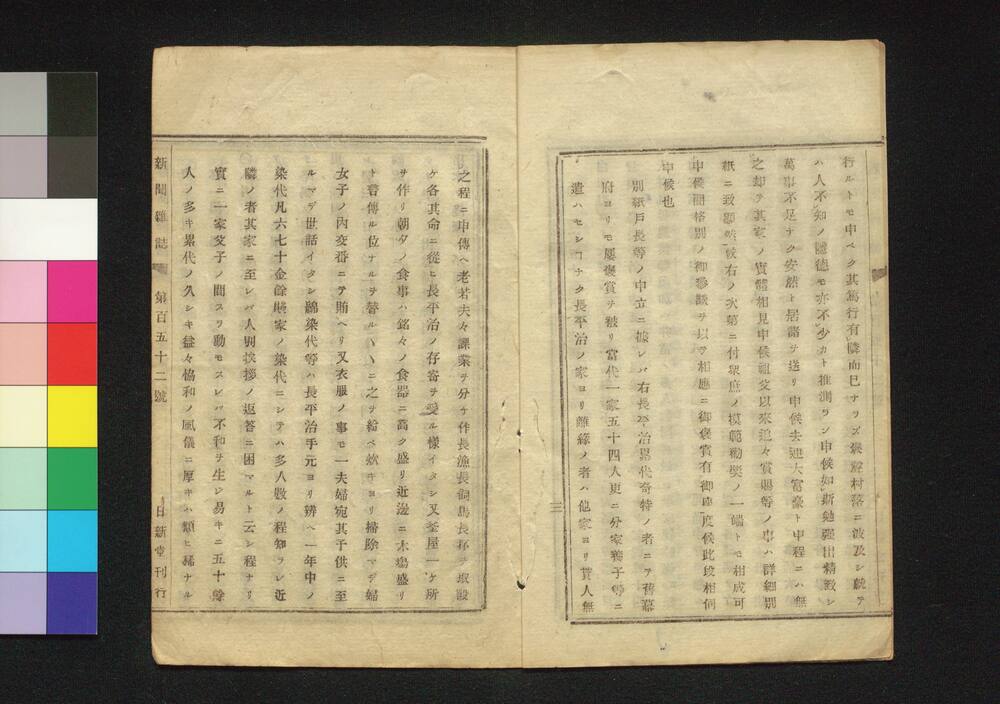 行ルトモ申ベク其篤行有隣而已ナラズ褒辞村落ニ波及シ戯テ
ハ人不知ノ隠徳モ亦不少カト推測ラン申候如斯勉強出精致シ
萬事不足ナク安然ト居諸ヲ送リ申候去迚大富豪ト申程ニハ無
之却テ其家ノ實體相見申候祖父以来追々賞賜等ノ事ハ詳細別
紙ニ致顕然候右ノ次第ニ付衆庶ノ模範勧奨ノ一端トモ相成可
申候間格別ノ御參議ヲ以テ相應ニ御褒賞有御座度候此段相伺
申候也
別紙戸長等ノ申立ニ據レバ右長平治累代奇特ノ者ニテ舊幕
府ヨリモ屡褒賞ヲ被リ當代一家五十四人更ニ分家養子等ニ
遣ハセシコナク長平治ノ家ヨリ離縁ノ者ハ他家ヨリ貰人無
三
之程ニ申傳ヘ老若夫々課業ヲ分ケ作長漁長飼馬長杯ヲ取設
ケ各其命ニ從ヒ長平治ノ存寄ヲ受ル様イタシ又釜屋一ケ所
ヲ作リ朝夕ノ食事ハ銘々ノ食器ニ高ク盛リ近邊ニ木嶋盛リ
ト言傳ル位ナルヲ替ルヽヽニ之ヲ給ベ炊キヨリ掃除マデ婦
女子ノ内交番ニテ賄ヘリ又衣服ノ事モ一夫婦宛其子供ニ至
ルマデ世話イタシ綿染代等ハ長平治手元ヨリ辨ヘ一年中ノ
染代凡六七十金餘一家ノ染代ニシテハ多人數ノ程知ラレ近
隣ノ者其家ニ至レバ人別挨拶ノ返答ニ困マルト云シ程ナリ
實ニ一家父子ノ間スラ動モスレバ不和ヲ生シ易キニ五十餘
人ノ多キ累代ノ久シキ益々協和ノ風儀ニ厚キハ類ヒ稀ナル
新聞雜誌 第百五十二號 日新堂刊行